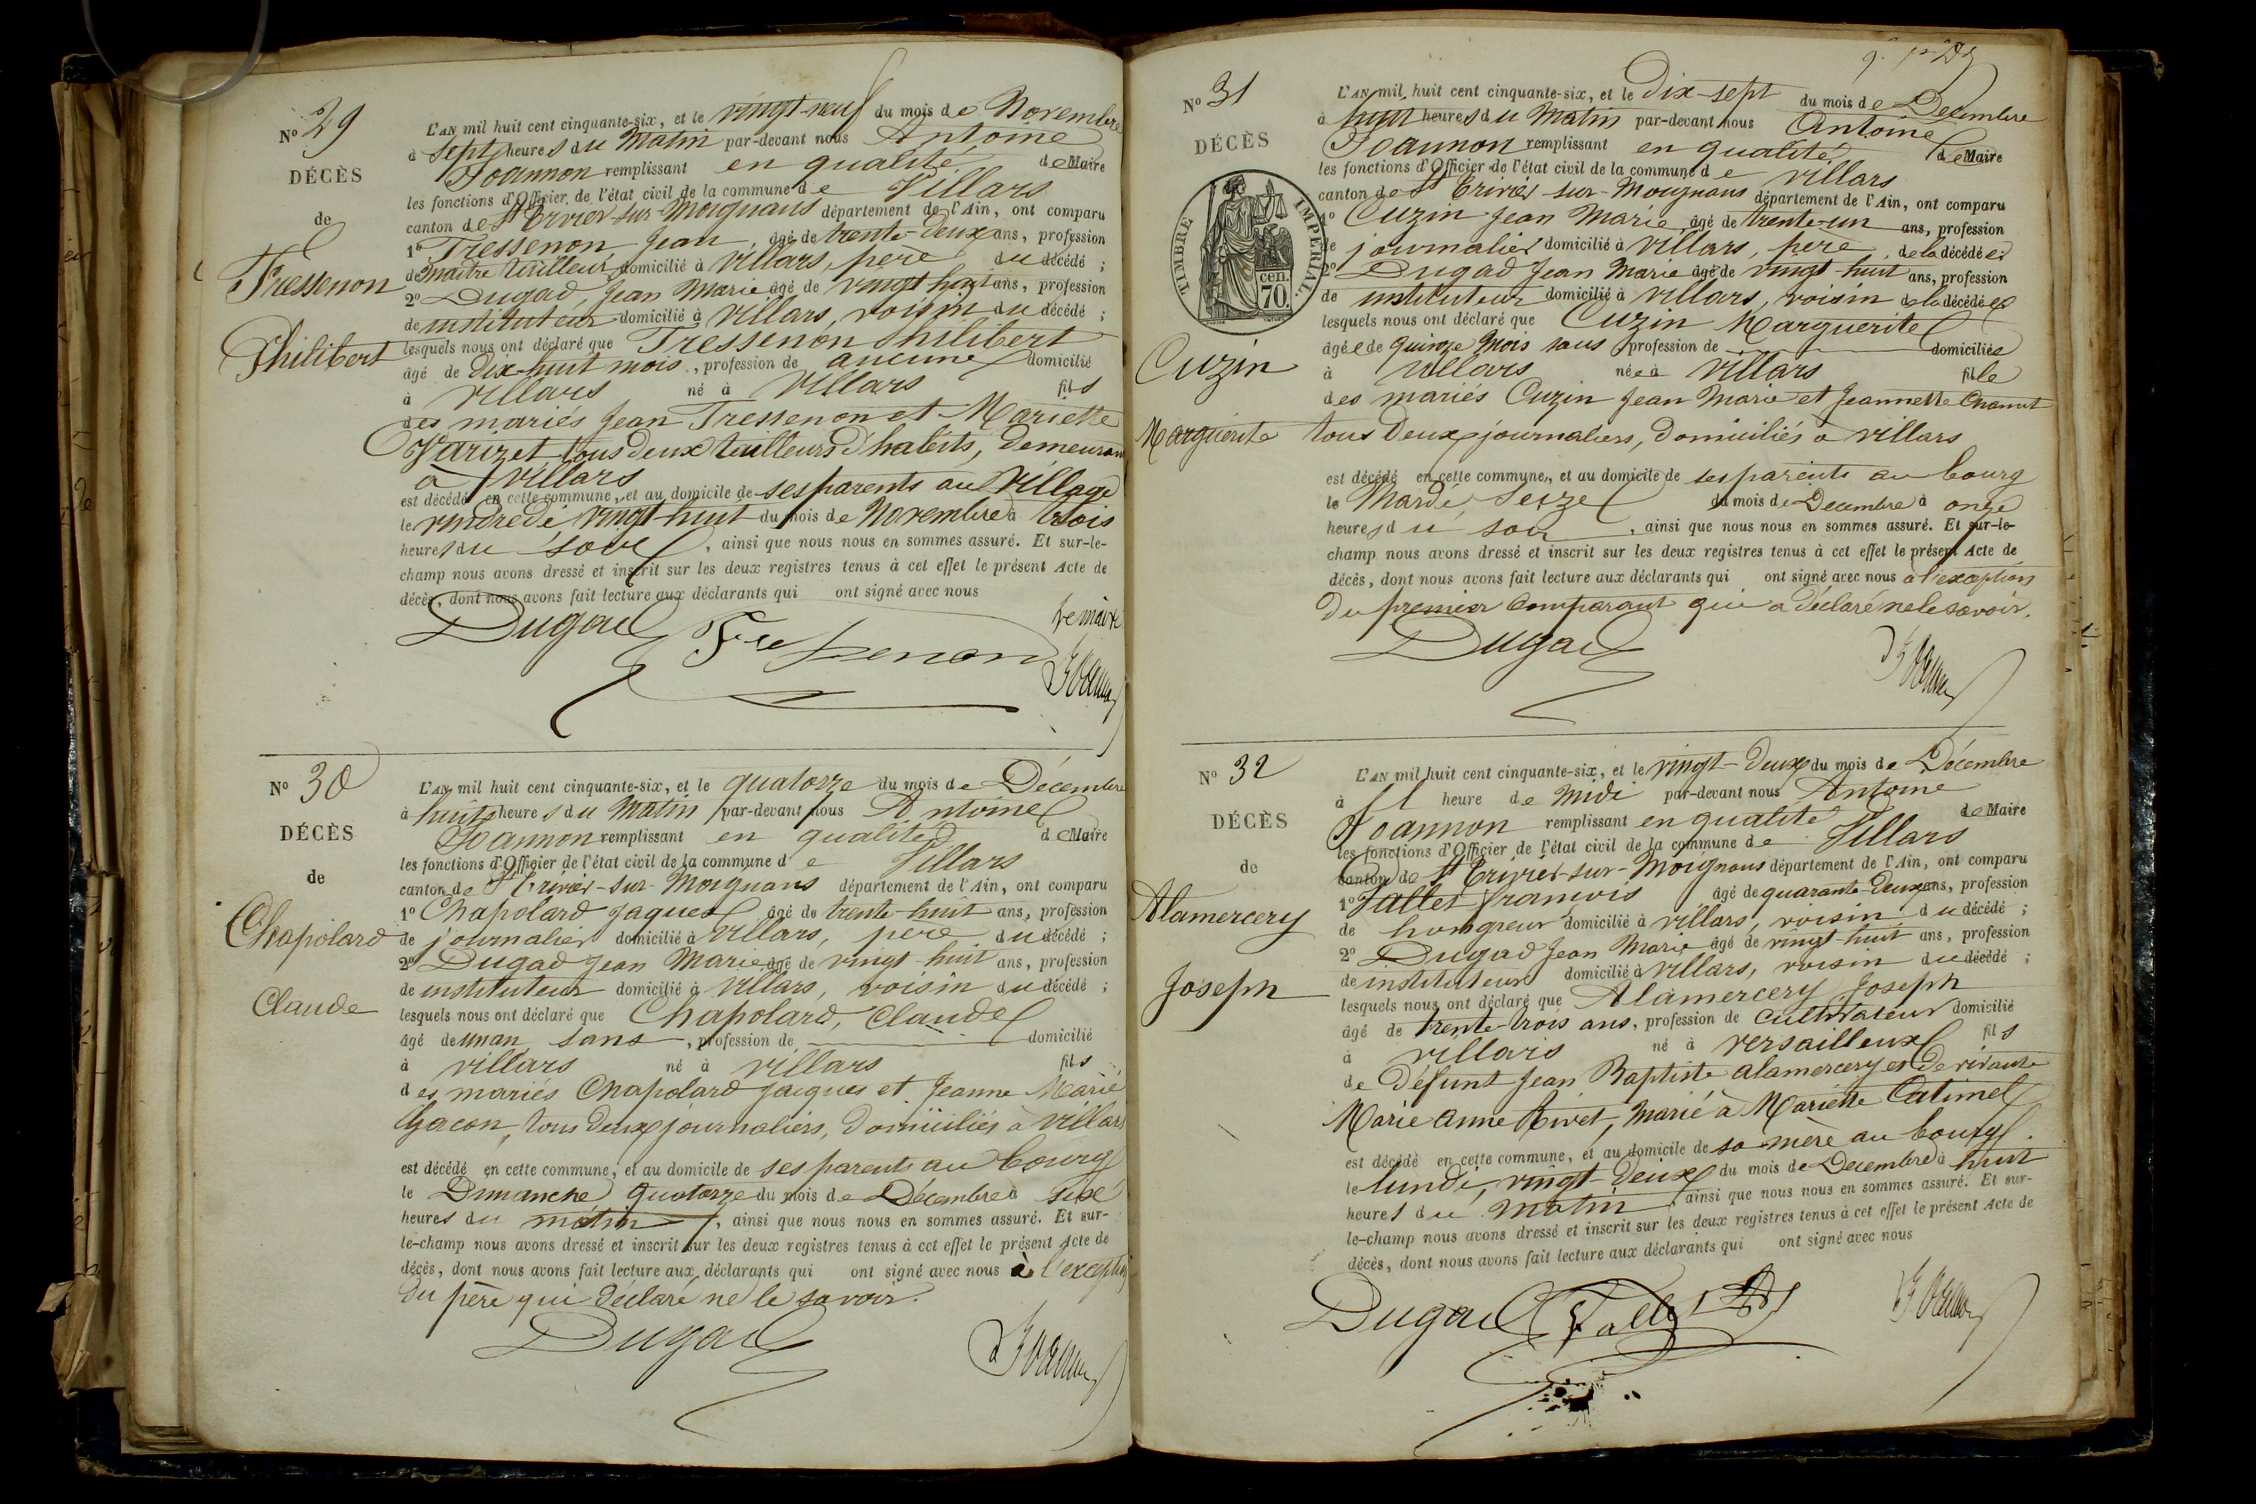 N° 29
DÉCÈS
de
Tressenon
Philibert
L'AN mil huit cent cinquante-six, et le vingt-neuf du mois de Novembre
à sept heures du Matin par-devant nous Antoine
Joannon remplissant en qualité de Maire
les fonctions d'Officier de l'état civil de la commune de Villars
canton de St Trivier-sur-Moignans département de l'Ain, ont comparu
1° Tressenon Jean, âgé de trente-deux ans, profession
de maître tailleur domicilié à Villars, père du décédé ;
2° Dugad, Jean Marie âgé de vingt huit ans, profession
de instituteur domicilié à Villars, voisin du décédé ;
lesquels nous ont déclaré que Tressenon Philibert
âgé de dix-huit mois, profession de aucune domicilié
à Villars né à Villars fils
des mariés Jean Tressenon et Mariette
Varizet tous deux tailleurs d'habits, demeurant
à Villars
est décédé en cette commune, et au domicile de ses parents au Village
le vendredi vingt-huit du mois de Novembre à trois
heures du soir, ainsi que nous nous en sommes assuré. Et sur-le-
champ nous avons dressé et inscrit sur les deux registres tenus à cet effet le présent Acte de
décès, dont nous avons fait lecture aux déclarants qui ont signé avec nous
Le maire
Dugad Tressenon Joannon
N° 30
DÉCÈS
de
Chapolard
Claude
L'AN mil huit cent cinquante-six, et le quatorze du mois de Décembre
à huit heures du Matin par-devant nous Antoine
Joannon remplissant en qualité de Maire
les fonctions d'Officier de l'état civil de la commune de Villars
canton de St Trivier-sur-Moignans département de l'Ain, ont comparu
1° Chapolard Jaques âgé de trente-huit ans, profession
de journalier domicilié à Villars, père du décédé ;
2° Dugad Jean Marie âgé de vingt-huit ans, profession
de instituteur domicilié à Villars, voisin du décédé ;
lesquels nous ont déclaré que Chapolard, Claude
âgé de un an sans, profession de domicilié
à Villars né à Villars fils
des mariés Chapolard Jacques et Jeanne Marie
Gacon, tous deux journaliers, domiciliés à Villars
est décédé en cette commune, et au domicile de ses parents au bourg
le Dimanche quatorze du mois de Décembre à six
heures du matin, ainsi que nous nous en sommes assuré. Et sur-
le-champ nous avons dressé et inscrit sur les deux registres tenus à cet effet le présent Acte de
décès, dont nous avons fait lecture aux déclarants qui ont signé avec nous à l'exception
du père qui déclare ne le savoir.
Dugad Joannon
N° 31
DÉCÈS
TIMBRE IMPÉRIAL.
cen.
70.
Cuzin
Marguerite
L'AN mil huit cent cinquante-six, et le dix-sept du mois de Décembre
à huit heures du Matin par-devant nous Antoine
Joannon remplissant en qualité de Maire
les fonctions d'Officier de l'état civil de la commune de Villars
canton de St Trivier-sur-Moignans département de l'Ain, ont comparu
1° Cuzin Jean Marie, âgé de trente-un ans, profession
de journalier domicilié à Villars, père de la décédée ;
2° Dugad Jean Marie âgé de vingt-huit ans, profession
de instituteur domicilié à Villars, voisin de la décédée
lesquels nous ont déclaré que Cuzin Marguerite
âgée de quinze mois sans profession de domiciliée
à Villars née à Villars fille
des mariés Cuzin Jean Marie et Jeannette Chanut
tous deux journaliers, domiciliés à Villars
est décédé en cette commune, et au domicile de ses parents au bourg
le Mardi Seize du mois de Decembre à onze
heures du soir, ainsi que nous nous en sommes assuré. Et sur-le-
champ nous avons dressé et inscrit sur les deux registres tenus à cet effet le présent Acte de
décès, dont nous avons fait lecture aux déclarants qui ont signé avec nous à l'exception
du premier comparant qui a déclaré ne le savoir.
Dugad Joannon
N° 32
DÉCÈS
de
Alamercery
Joseph
L'AN mil huit cent cinquante-six, et le vingt-deux du mois de Décembre
à heure de Midi par-devant nous Antoine
Joannon remplissant en qualité de Maire
les fonctions d'Officier de l'état civil de la commune de Villars
canton de St Trivier-sur-Moignans département de l'Ain, ont comparu
1° Fallet françois âgé de quarante-deux ans, profession
de hongreur domicilié à Villars, voisin du décédé ;
2° Dugad Jean Marie âgé de vingt-huit ans, profession
de instituteur domicilié à Villars, voisin du décédé ;
lesquels nous ont déclaré que Alamercery Joseph
âgé de trente-trois ans, profession de cultivateur domicilié
à Villars né à Versailleux fils
de défunt Jean Baptiste Alamercery et de vivante
Marie Anne Rivet, marié à Mariette Catimel
est décédé en cette commune, et au domicile de sa mère au bourg
le lundi, vingt-deux du mois de Decembre à huit
heures du matin, ainsi que nous nous en sommes assuré. Et sur-
le-champ nous avons dressé et inscrit sur les deux registres tenus à cet effet le présent Acte de
décès, dont nous avons fait lecture aux déclarants qui ont signé avec nous
Dugad Fallet Joannon